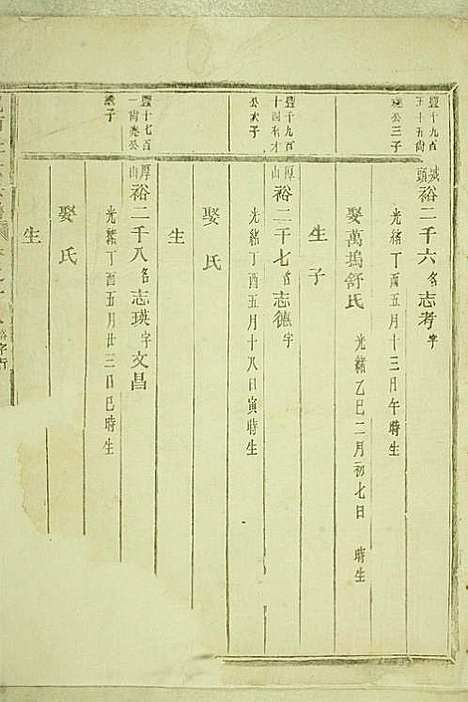 豐十九百
五十五尚
公三子
城頭裕二千六名志考字
光緒丁酉五月十三日午時生
娶萬塢舒氏 光緒乙巳二月初七日 時生
生子
豐十九百
十四利才
公次子
厚山裕二千七名志德字
光緒丁酉五月十八日寅時生
娶氏
生
豐十七百
一尚公
子
厚山裕二千八名志瑛字文昌
光緒丁酉五月廿三日巳時生
娶氏
生